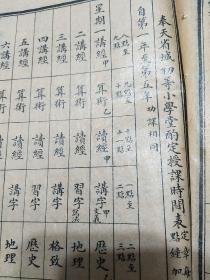 奉天省城初等小學堂酌定授課時間表
自第一年至第五年功課相同
八點至九點 九點至十點 十點至十一點 一點至二點 二點至三點
星期一 講經甲 算術乙 讀經甲 講字甲 歷史
二 講經 算術 讀經 習字 地理
三 講經 算術 讀經 講字 格致
四 講經 算術 讀經 習字 歷史
五 講經 算術 讀經 講字 地理
六 講經